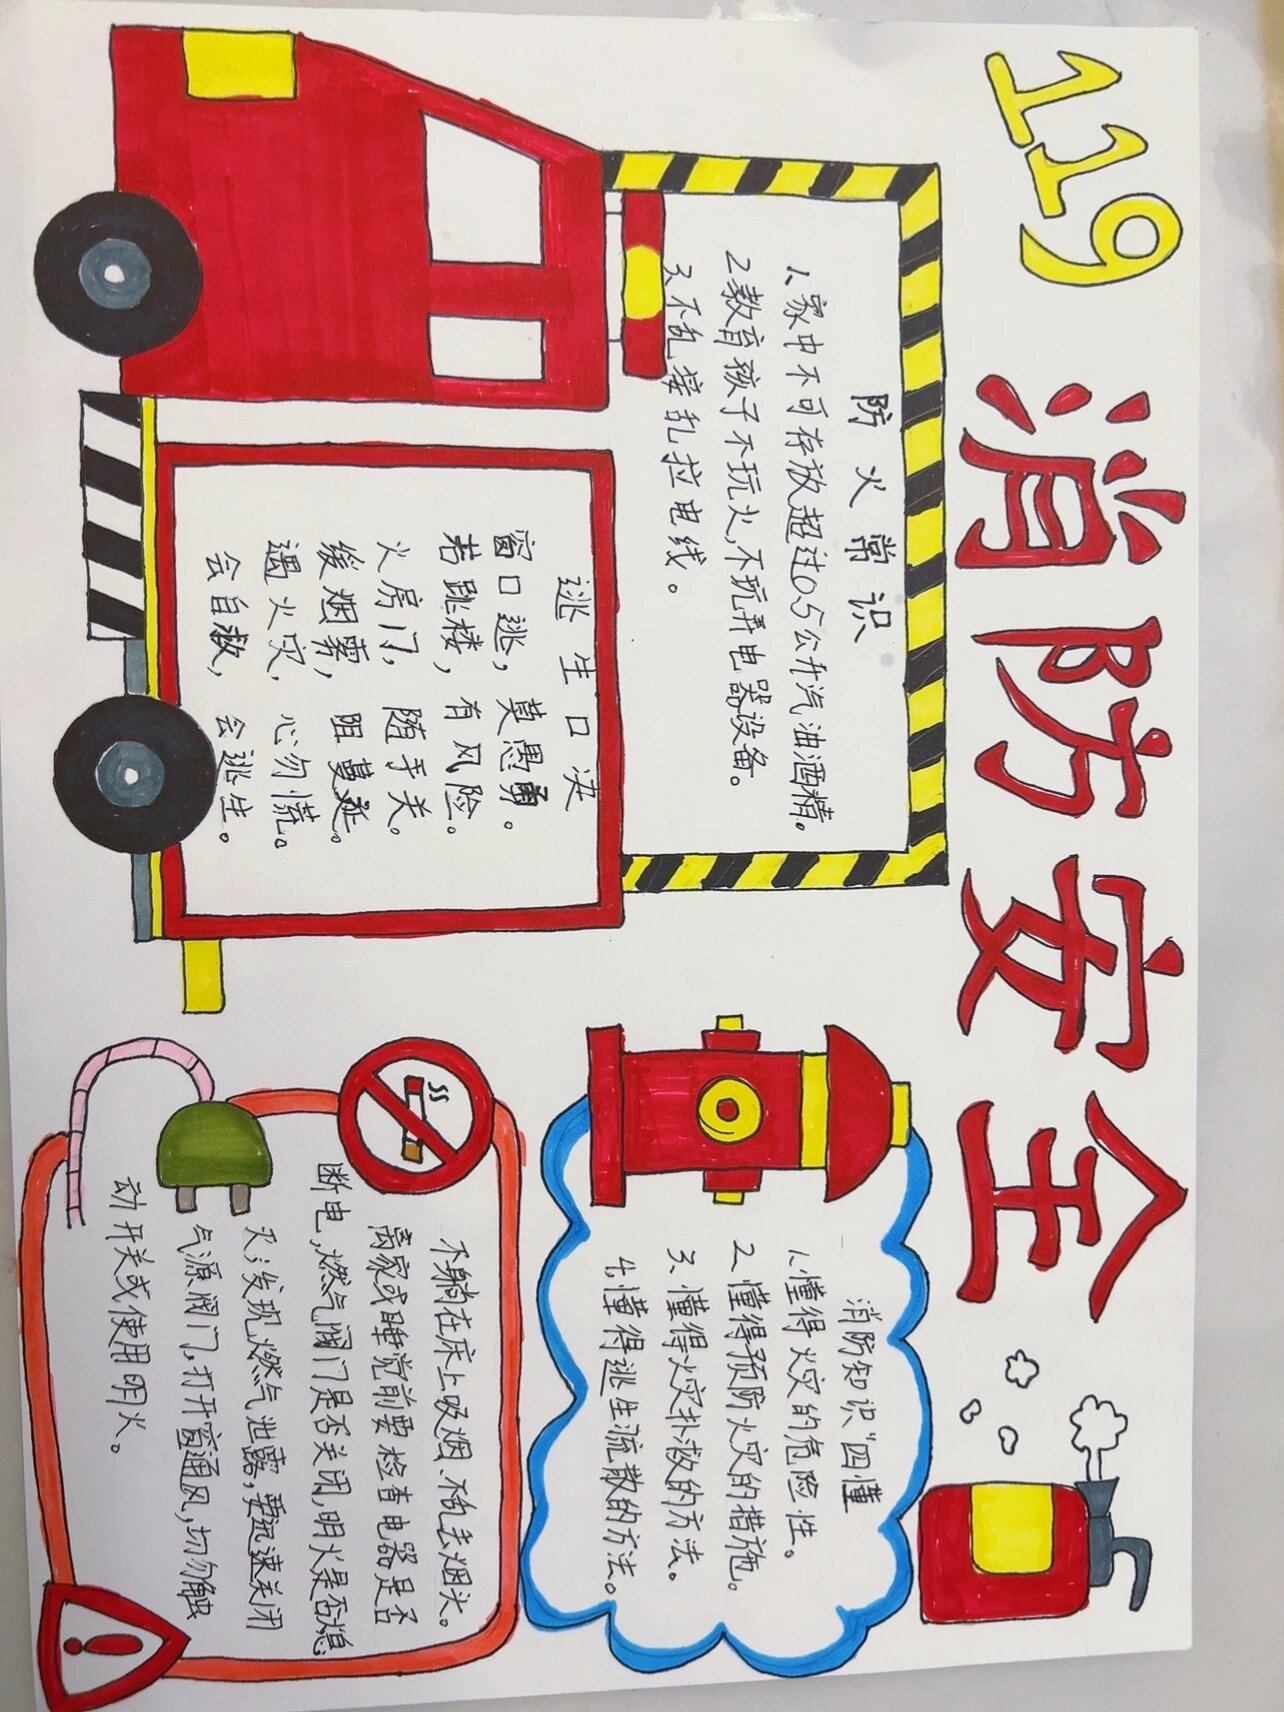 119 消防安全
防火常识
1、家中不可存放超过0.5公升汽油酒精。
2教育孩子不玩火,不玩弄电器设备。
3、不乱接乱拉电线。
逃生口决
窗口逃,莫愚勇。
若跳楼,有风险。
火房门,随手关。
缓烟雾,阻蔓延。
遇火灾,心勿慌。
会自救,会逃生。
消防知识“四懂
1.懂得火灾的危险性。
2、懂得预防火灾的措施。
3、懂得火灾扑救的方法。
4,懂得逃生流散的方法。
不躺在床上吸烟、不乱丢烟头。
离家或睡觉前要检查电器是否
断电,燃气阀门是否关闭,明火是否熄
灭;发现燃气泄露,要迅速关闭
气源阀门,打开窗通风,切勿触
动开关或使用明火。